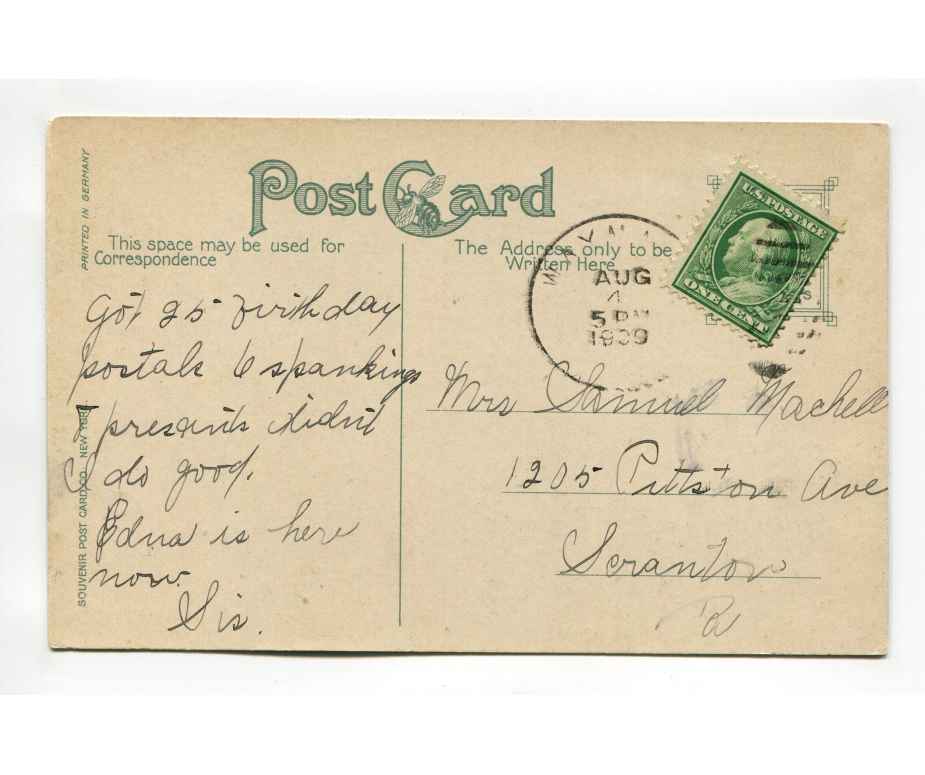 PRINTED IN GERMANY
SOUVENIR POST CARD CO. NEW YORK
Post Card
This space may be used for
Correspondence
The Address only to be
Written Here
AUG
4
5 PM
1909
U.S. POSTAGE
ONE CENT
Got 25 birthday
postals 6 spankings
presents didnt
I do good.
Edna is here
now.
Sis.
Mrs Samuel Machell
1205 Pittston Ave
Scranton
Pa